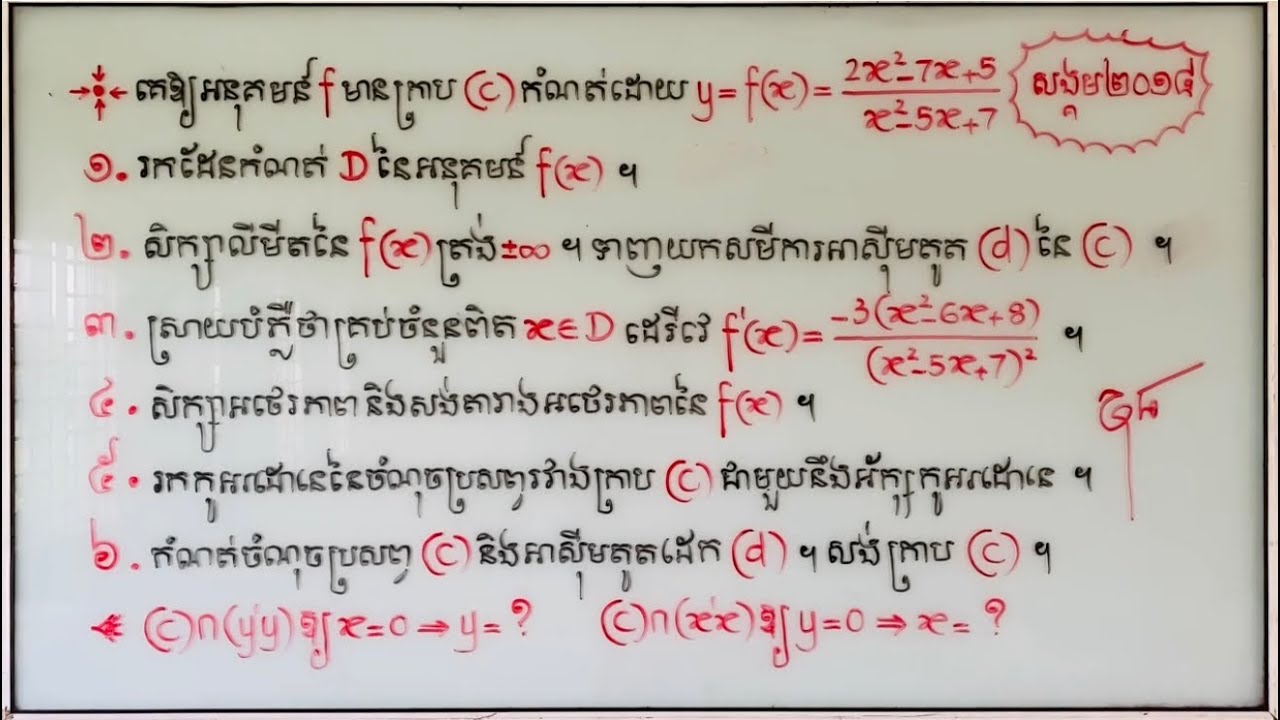 គេឱ្យអនុគមន៍ f មានក្រាប (C) កំណត់ដោយ y = f(x) = (2x²-7x+5)/(x²-5x+7) សង្គម២០១៨
១. រកដែនកំណត់ D នៃអនុគមន៍ f(x) ។
២. សិក្សាលីមីតនៃ f(x) ត្រង់ ±∞ ។ ទាញយកសមីការអាស៊ីមតូត (d) នៃ (C) ។
៣. ស្រាយបំភ្លឺថាគ្រប់ចំនួនពិត x∈D ដេរីវេ f'(x) = -3(x²-6x+8)/(x²-5x+7)² ។
៤. សិក្សាអថេរភាព និងសង់តារាងអថេរភាពនៃ f(x) ។
៥. រកកូអរដោនេនៃចំណុចប្រសព្វរវាងក្រាប (C) ជាមួយនឹងអ័ក្សកូអរដោនេ ។
៦. កំណត់ចំណុចប្រសព្វ (C) និងអាស៊ីមតូតដេក (d) ។ សង់ក្រាប (C) ។
(C)∩(y'y) ឱ្យ x=0 ⇒ y= ? (C)∩(x'x) ឱ្យ y=0 ⇒ x= ?